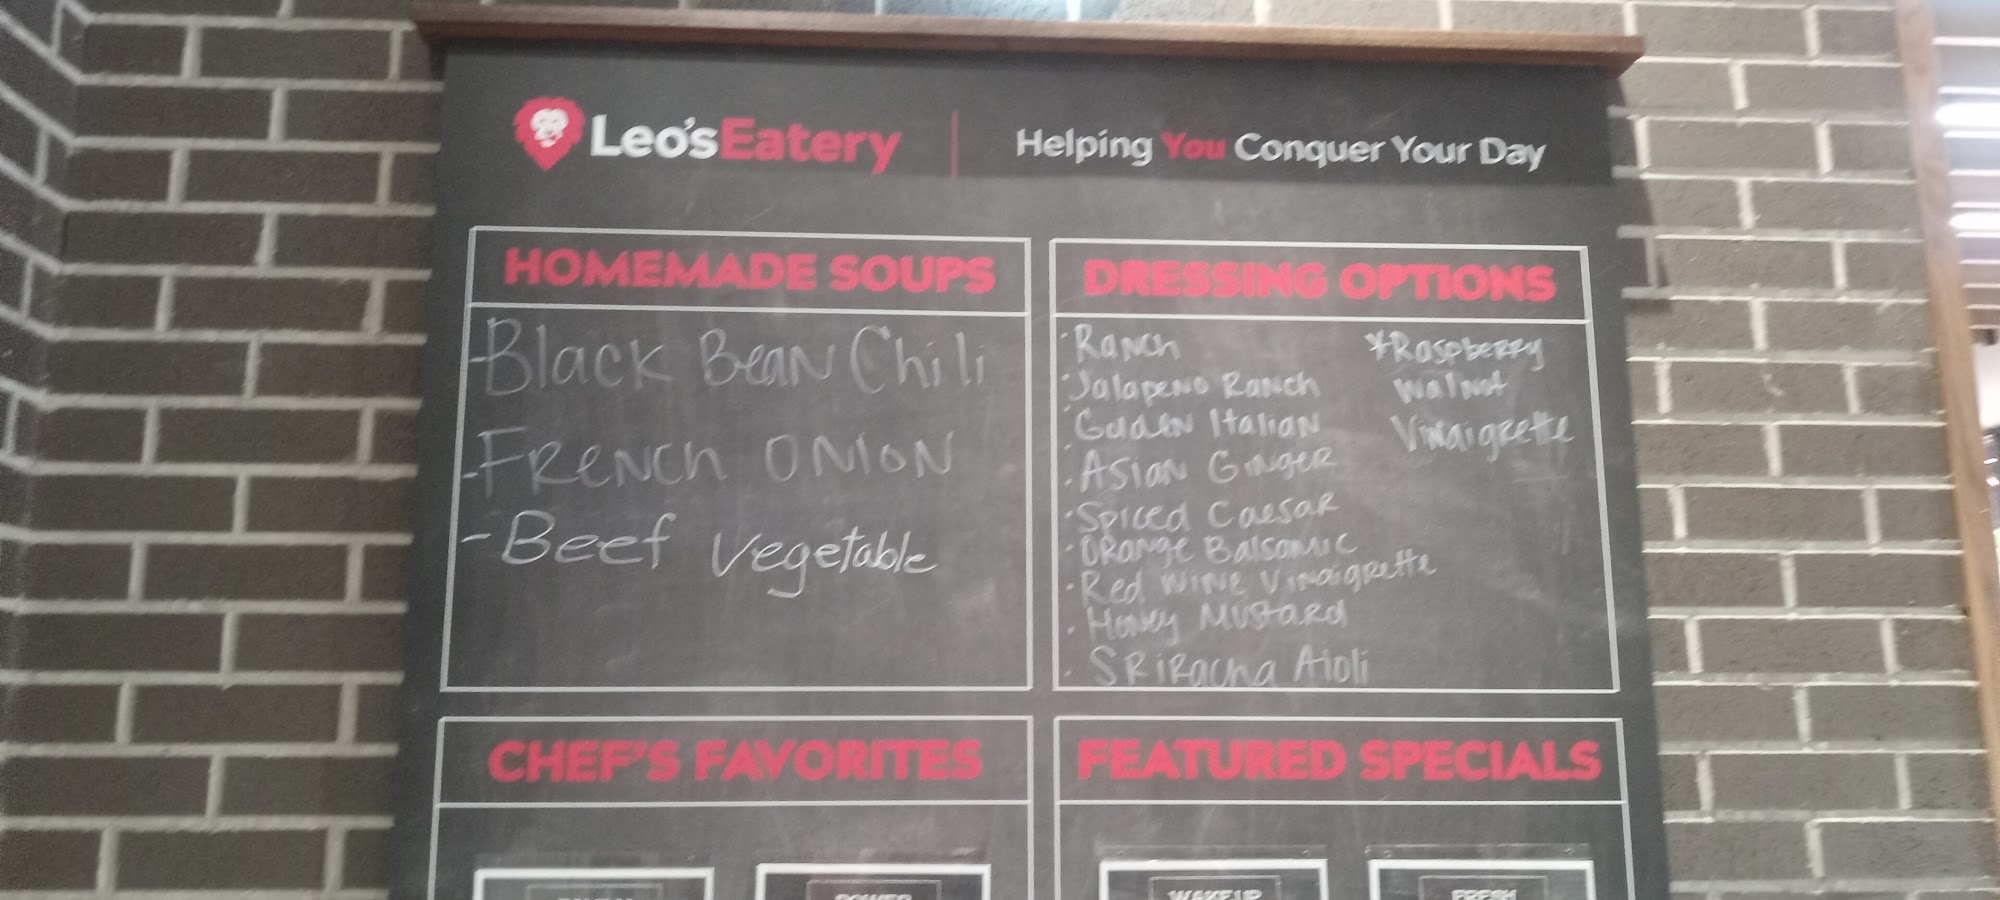 Leo'sEatery
Helping You Conquer Your Day
HOMEMADE SOUPS
-Black Bean Chili
-French Onion
-Beef Vegetable
DRESSING OPTIONS
·Ranch
·Jalapeno Ranch
·Golden Italian
·Asian Ginger
·Spiced Caesar
·Orange Balsamic
·Red Wine Vinaigrette
·Honey Mustard
·Sriracha Aioli
*Raspberry
Walnut
Vinaigrette
CHEF'S FAVORITES
POWER
FEATURED SPECIALS
WAKE UP
FRESH